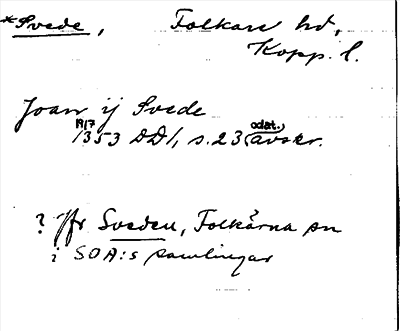 *Svede, Folkare hd,
Kopp. l.
Joan ij Svede
19/7 odat.
1353 DD1, s. 23, avskr.
? Jfr Sveden, Folkärna sn
i SOA:s samlingar